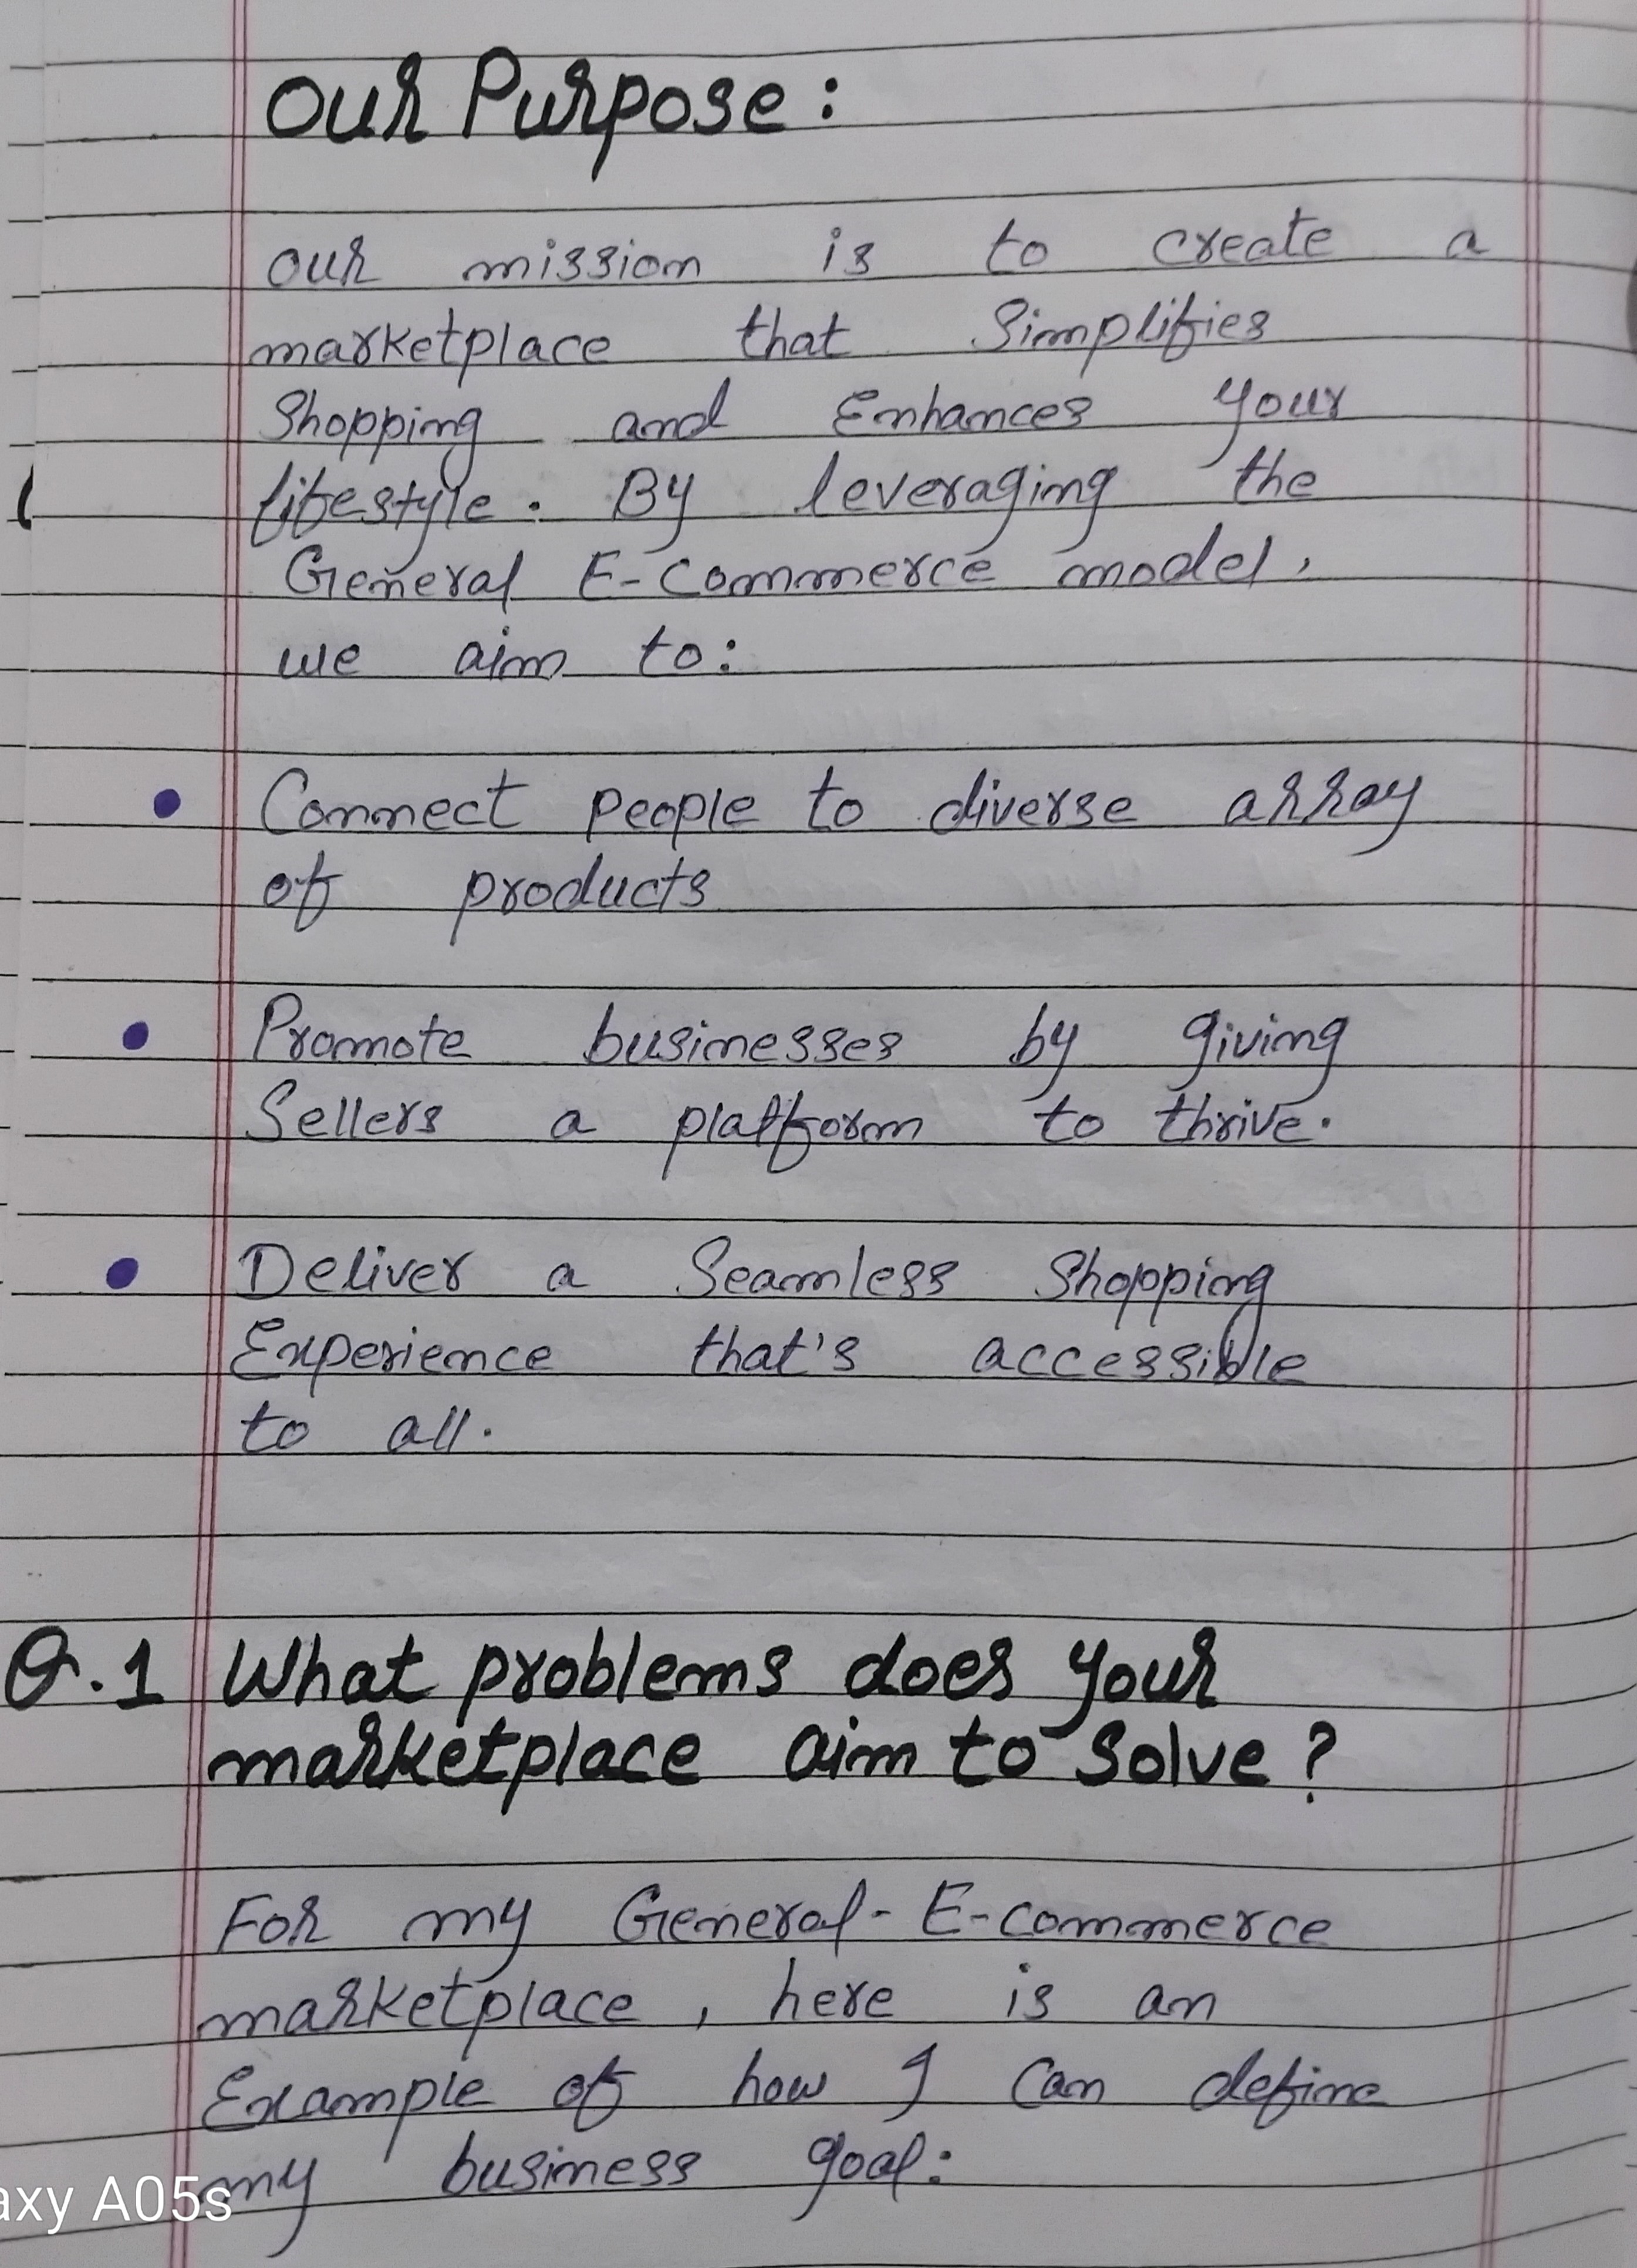 Our Purpose:
our mission is to create a
marketplace that Simplifies
Shopping and Enhances your
lifestyle. By leveraging the
General E-Commerce model,
we aim to:
• Connect people to diverse array
of products
• Promote businesses by giving
Sellers a platform to thrive.
• Deliver a Seamless Shopping
Experience that's accessible
to all.
Q.1 What problems does your
marketplace aim to solve?
For my General-E-commerce
marketplace, here is an
Example of how I can define
my business goal:
axy A05s